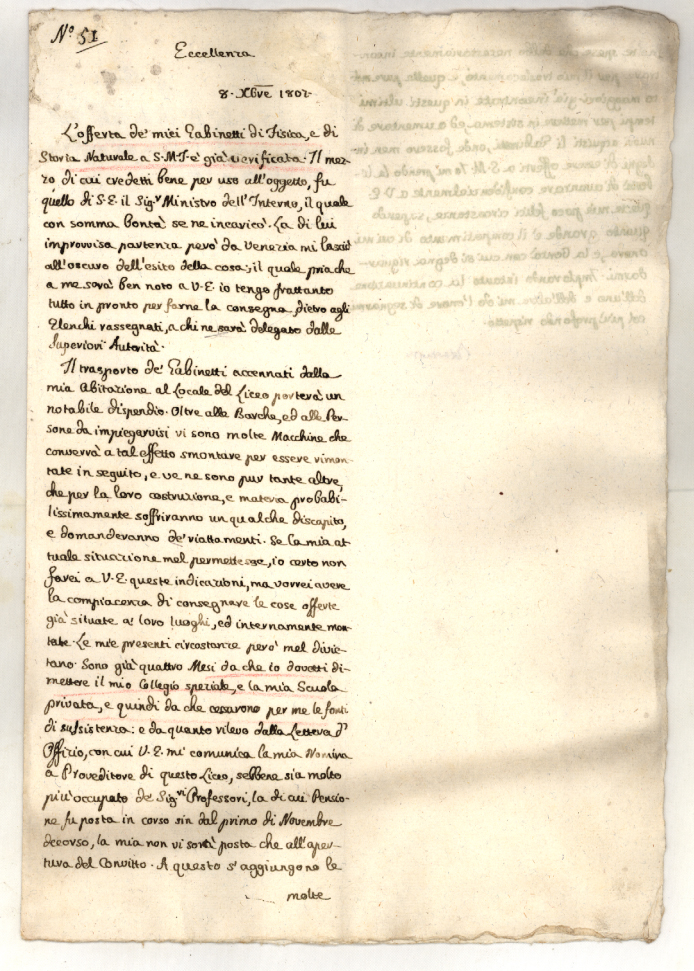 N.º 51
Eccellenza
8. Xbre 1807
L'offerta de' miei Gabinetti di Fisica, e di
Storia Naturale a S. M. I. è già verificata. Il mez-
zo di cui credetti bene per uso all'oggetto, fu
quello di S. E. il Sig.r Ministro dell'Interno, il quale
con somma bontà se ne incaricò. La di lui
improvvisa partenza però da Venezia mi lasciò
all'oscuro dell'esito della cosa; il quale pria che
a me sarà ben noto a V. E. io tengo frattanto
tutto in pronto per farne la consegna, dietro agli
Elenchi rassegnati, a chi ne sarà delegato dalle
Superiori Autorità.
Il trasporto de' Gabinetti accennati dalla
mia Abitazione al Locale del Liceo porterà un
notabile dispendio. Oltre alle Barche, ed alle Per-
sone da impiegarvisi vi sono molte Macchine che
converrà a tal effetto smontare per essere rimon-
tate in seguito, e ve ne sono pur tante altre,
che per la loro costruzione, e materia probabi-
lissimamente soffriranno un qualche discapito,
e domanderanno de' riattamenti. Se la mia at-
tuale situazione mel permettesse, io certo non
farei a V. E. queste indicazioni, ma vorrei avere
la compiacenza di consegnare le cose offerte
già situate a' loro luoghi, ed internamente mon-
tate. Le mie presenti circostanze però mel divie-
tano. Sono già quattro Mesi da che io dovetti di-
mettere il mio Collegio speziale, e la mia Scuola
privata, e quindi da che cessarono per me le fonti
di sussistenza: e da quanto rilevo dalla Lettera d'
Offizio, con cui V. E. mi comunica la mia Nomina
a Proveditore di questo Liceo, sebbene sia molto
più occupato de' Sig.ri Professori, la di cui Pensio-
ne fu posta in corso sin dal primo di Novembre
decorso, la mia non vi sarà posta che all'aper-
tura del Convitto. A questo s'aggiungono le
molte